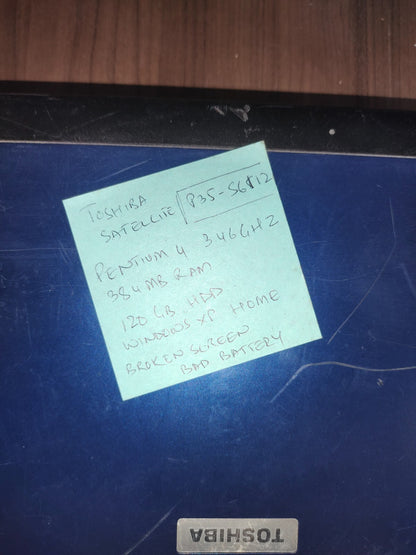 TOSHIBA
SATELLITE P35-S6112
PENTIUM 4 3.46GHZ
384MB RAM
120 GB HDD
WINDOWS XP HOME
BROKEN SCREEN
BAD BATTERY
TOSHIBA